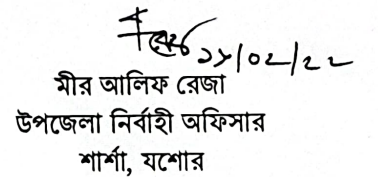 ২১/০২/২২
মীর আলিফ রেজা
উপজেলা নির্বাহী অফিসার
শার্শা, যশোর